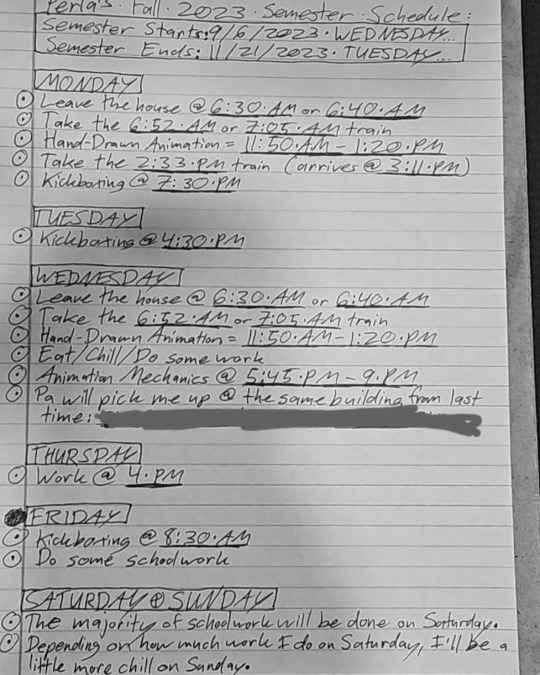 Perla's Fall 2023 Semester Schedule:
Semester Starts: 9/6/2023 • WEDNESDAY...
Semester Ends: 11/21/2023 • TUESDAY...
MONDAY
Leave the house @ 6:30•AM or 6:40•AM
Take the 6:52•AM or 7:05•AM train
Hand-Drawn Animation = 11:50•AM-1:20•PM
Take the 2:33•PM train (arrives @ 3:11•PM)
Kickboxing @ 7:30•PM
TUESDAY
Kickboxing @ 4:30•PM
WEDNESDAY
Leave the house @ 6:30•AM or 6:40•AM
Take the 6:52•AM or 7:05•AM train
Hand-Drawn Animation = 11:50•AM-1:20•PM
Eat/Chill/Do some work
Animation Mechanics @ 5:45•PM-9•PM
Pa will pick me up @ the same building from last
time:
THURSDAY
Work @ 4•PM
FRIDAY
Kickboxing @ 8:30•AM
Do some schoolwork
SATURDAY @ SUNDAY
The majority of schoolwork will be done on Saturday.
Depending on how much work I do on Saturday, I'll be a
little more chill on Sunday.